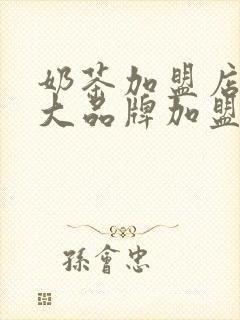 奶茶加盟店
大品牌加盟
孫會忠